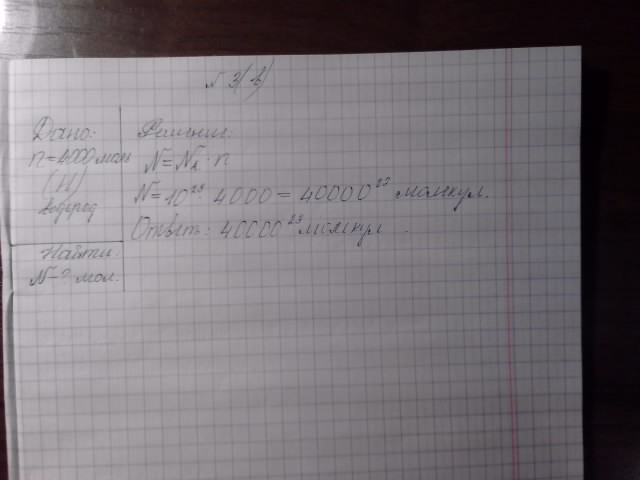 № 3(в)
Дано:
n=4000 моль
(H)
водород
Найти:
N-? мол.
Решение:
N=Nₐ·n
N=10²³·4000=40000²³ молекул.
Ответ: 40000²³ молекул.